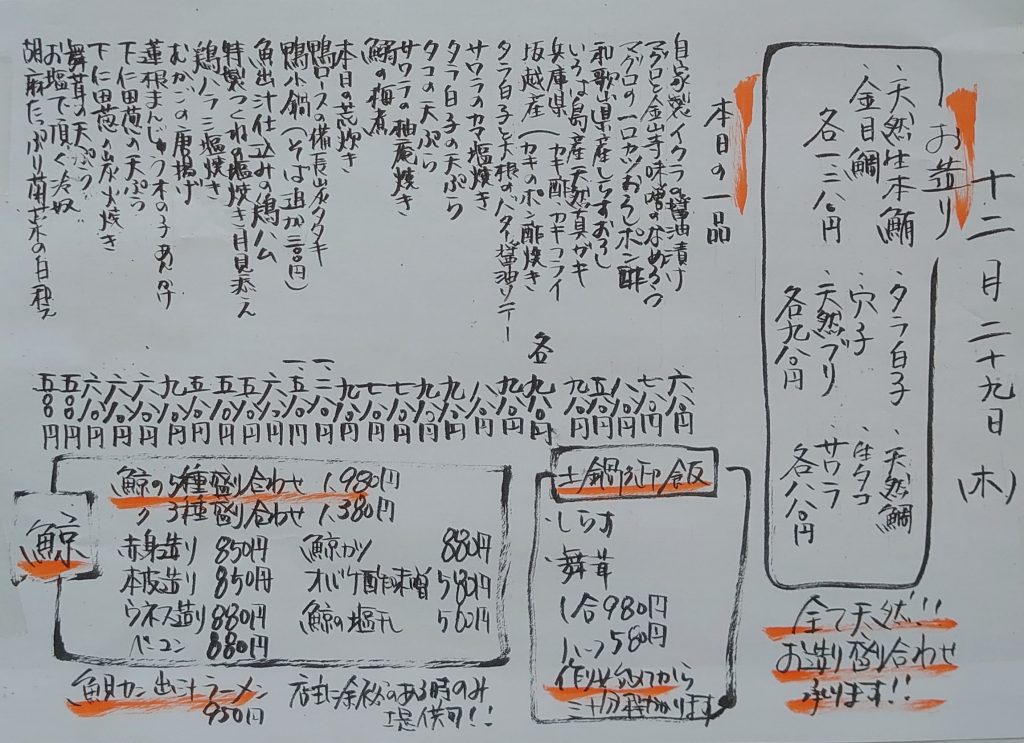 十二月二十九日(木)
お造り
・天然生本鮪
金目鯛
各一三八〇円
・タラ白子
・穴子
・天然ブリ
各九八〇円
・天然鯛
・生タコ
・サワラ
各八八〇円
全て天然!!
お造り盛り合わせ
承ります!!
本日の一品
自家製イクラの醤油漬け 六八〇円
マグロと金山寺味噌のなめろう 七八〇円
マグロの一口カツおろしポン酢 八八〇円
和歌山県産しらすおろし 五八〇円
いろは島産天然真ガキ 九八〇円
兵庫県坂越産(カキ酢 カキフライ カキのポン酢焼き 各九八〇円
タラ白子と大根のバター醤油ソテー 九八〇円
サワラのカマ塩焼き 八八〇円
タラ白子の天ぷら 九八〇円
タコの天ぷら
サワラの柚庵焼き
鰯の梅煮
本日の荒炊き
鴨ロースの備長炭タタキ
鴨小鍋(そば追加三〇〇円)
魚出汁仕込みの鶏ハム
特製つくねの塩焼き月見添え
鶏ハラミ塩焼き
むかごの唐揚げ
蓮根まんじゅう木の子あんかけ
下仁田葱の天ぷら
下仁田葱の炭火焼き
舞茸の天ぷら
お塩で頂く冷奴
胡麻たっぷり菊菜の白和え
土鍋御飯
・しらす
・舞茸
1合980円
ハーフ580円
作り始めてから
三十分程かかります
鯨
鯨の5種盛り合わせ 1,980円
〃 3種盛り合わせ 1,380円
赤身造り 850円
本皮造り 850円
ウネス造り 880円
ベーコン 880円
鯨カツ 880円
オバケ酢味噌 580円
鯨の塩干 580円
魚貝カニ出汁ラーメン
950円
店主に余裕のある時のみ
提供可!!